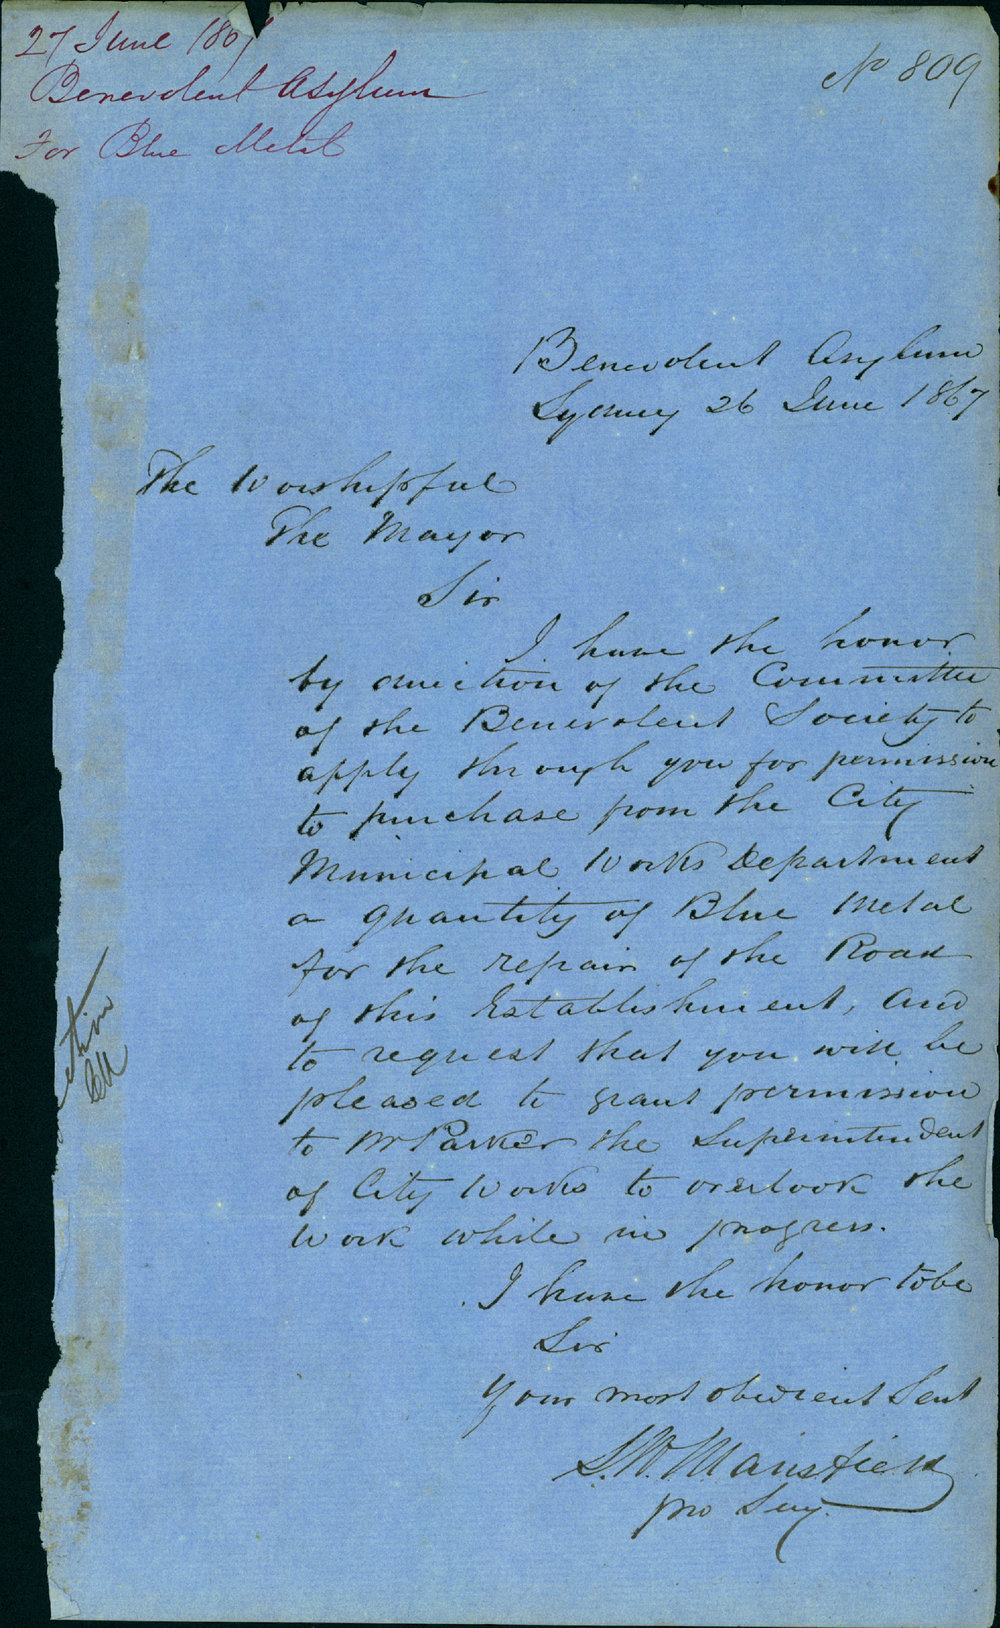 27 June 1867
Benevolent Asylum
For Blue Metal
No 809
Benevolent Asylum
Sydney 26 June 1867
The Worshipful
The Mayor
Sir
I have the honor
by direction of the Committee
of the Benevolent Society to
apply through you for permission
to purchase from the City
Municipal Works Department
a quantity of Blue Metal
for the repair of the Road
of this Establishment, and
to request that you will be
pleased to grant permission
to Mr Parker the Superintendent
of City Works to overlook the
work while in progress.
I have the honor to be
Sir
Your most obedient Servt
Mansfield
pro Secy